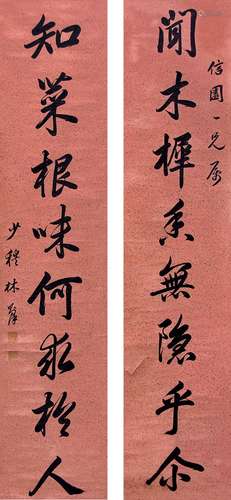 信園一兄属
聞木樨香無隐乎尒
知菜根味何求於人
少穆林